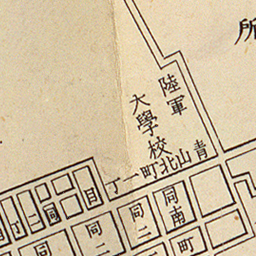 所
陸軍
大學校
青山北町一丁目
同二
同
同二
同二
同南
町